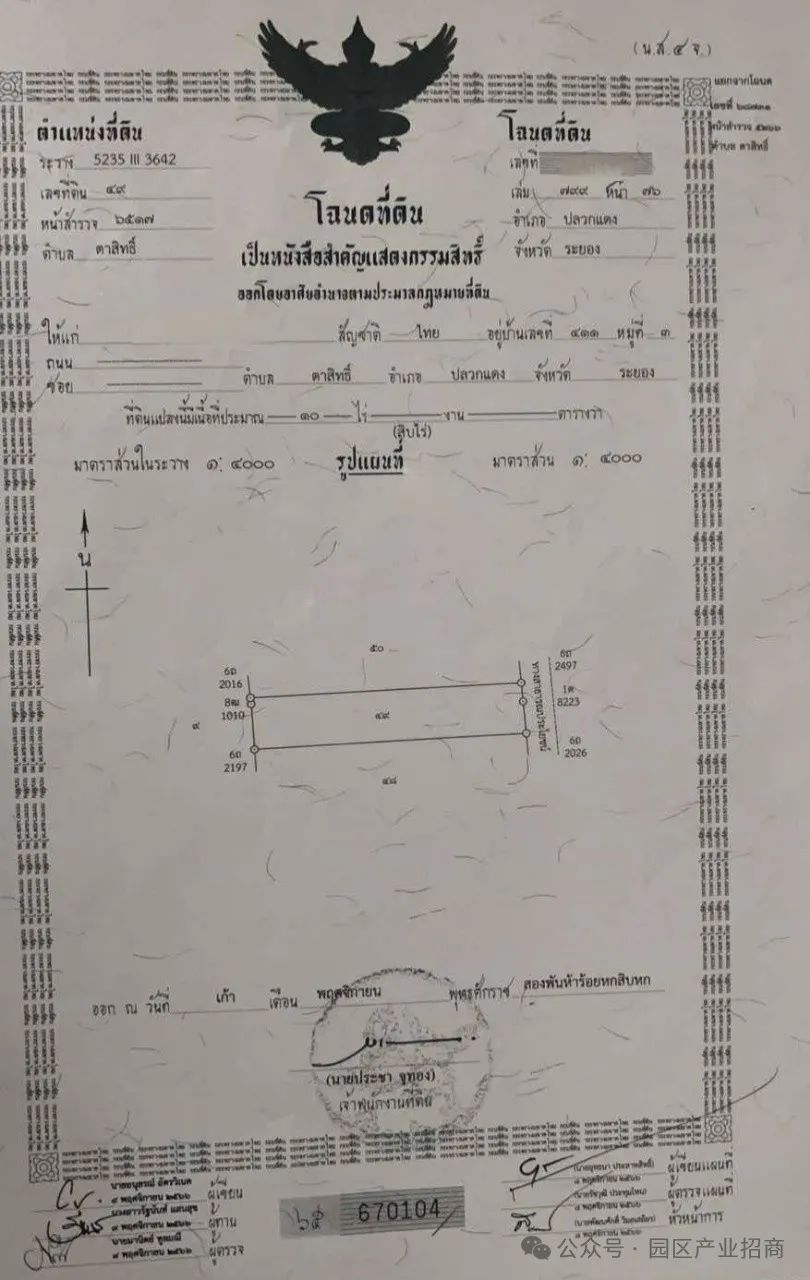 (น.ส. ๔ จ.)
แยกจากโฉนด
เลขที่
หน้าสำรวจ
ตำบล ตาสิทธิ์
ตำแหน่งที่ดิน
ระวาง 5235 III 3642
เลขที่ดิน ๔๙
หน้าสำรวจ ๖๕๑๗
ตำบล ตาสิทธิ์
โฉนดที่ดิน
เลขที่
เล่ม ๗๙๙ หน้า ๗๖
อำเภอ ปลวกแดง
จังหวัด ระยอง
โฉนดที่ดิน
เป็นหนังสือสำคัญแสดงกรรมสิทธิ์
ออกโดยอาศัยอำนาจตามประมวลกฎหมายที่ดิน
ให้แก่ สัญชาติ ไทย อยู่บ้านเลขที่ ๔๑๑ หมู่ที่ ๓
ถนน
ซอย ตำบล ตาสิทธิ์ อำเภอ ปลวกแดง จังหวัด ระยอง
ที่ดินแปลงนี้มีเนื้อที่ประมาณ ๑๐ ไร่ งาน ตารางวา
(สิบไร่)
มาตราส่วนในระวาง ๑: ๔๐๐๐ รูปแผนที่ มาตราส่วน ๑: ๔๐๐๐
น
๕๐
6ถ
2016
8ฒ
1010
6ถ
2197
๙
๔๙
๔๘
ทางสาธารณประโยชน์
6ถ
2497
1ด
8223
6ถ
2026
ออก ณ วันที่ เก้า เดือน พฤศจิกายน พุทธศักราช สองพันห้าร้อยหกสิบหก
(นายประชา ชูทอง)
เจ้าพนักงานที่ดิน
ผู้เขียน
๘ พฤศจิกายน ๒๕๖๖
ผู้ทาน
๘ พฤศจิกายน ๒๕๖๖
ผู้ตรวจ
๖๕ 670104
ผู้เขียนแผนที่
๘ พฤศจิกายน ๒๕๖๖
ผู้ตรวจแผนที่
๘ พฤศจิกายน ๒๕๖๖
หัวหน้าการ
公众号 · 园区产业招商